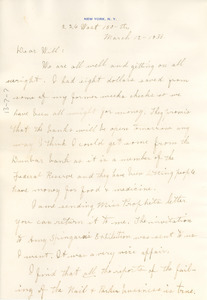 NEW YORK, N.Y.
226 West 150 St
March 12 - 1933
Dear Will:
We are all well and getting on all
alright. I had eight dollars saved from
some of my former weeks checks so we
have been all right for money. They promise
that the banks will be open tomorrow any
way I think I could get some from the
Dunbar bank as it is a member of the
Federal Reserve and they have been letting people
have money for food & medicine.
I am sending Miss letter
you can return it to me. The invitation
to Amy Spingarn's Exhibition was sent to me
I went. It was a very nice affair.
I find that all the reports of the fail-
ing of the Nail & Parker business is true.